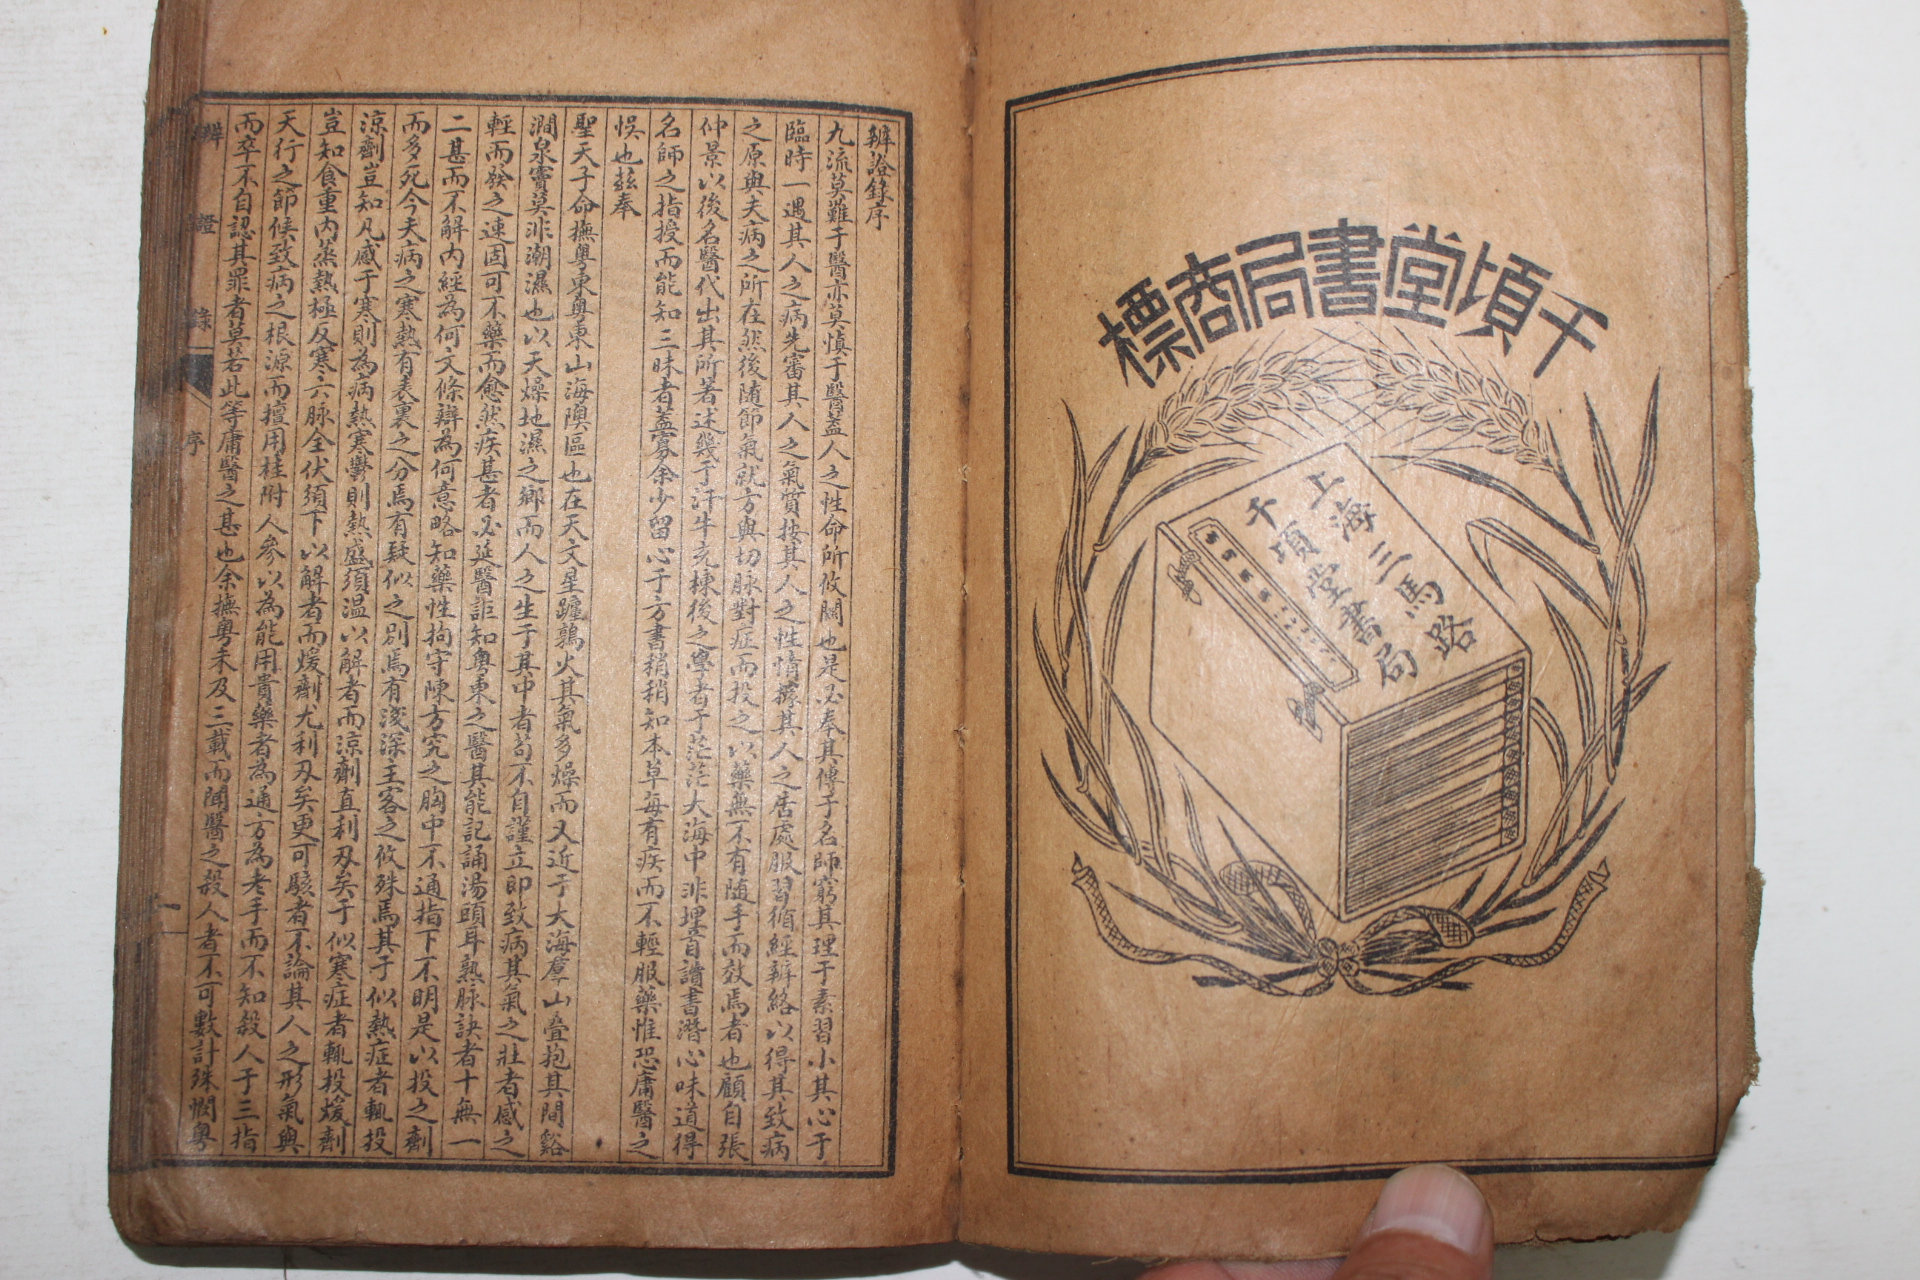 千頃堂書局商標
上海三馬路
千頃堂書局
辨證錄序
九流莫難于醫亦莫慎于醫蓋人之性命所攸關也是必奉其傳于名師窮其理于素習小其心于
臨時一遇其人之病先審其人之氣質按其人之性情據其人之居處服習循經辨絡以得其致病
之原與夫病之所在然後隨節氣就方與切脉對症而投之以藥無不有随手而效焉者也顧自張
仲景以後名醫代出其所著述幾于汗牛充棟後之學者于茫茫大海中非埋首讀書潛心味道得
名師之指授而能知三昧者蓋寡余少留心于方書稍稍知本草每有疾而不輕服藥惟恐庸醫之
悞也兹奉
聖天子命撫粵東粵東山海隩區也在天文星躔鶉火其氣多燥而又近于大海羣山叠抱其間谿
澗泉竇莫非潮濕也以天燥地濕之鄉而人之生于其中者苟不自謹立即致病其氣之壯者感之
輕而發之速固可不藥而愈然疾甚者必延醫詎知粵東之醫其能記誦湯頭耳熟脉訣者十無一
二甚而不解内經為何文條辯為何意略知藥性拘守陳方究之胸中不通指下不明是以投之劑
而多死今夫病之寒熱有表裏之分焉有疑似之别焉有淺深主客之攸殊焉其于似熱症者輒投
涼劑豈知凡感于寒則為病熱寒鬱則熱盛須温以解者而涼劑直利刄矣于似寒症者輒投煖劑
豈知食重内蒸熱極反寒六脉全伏須下以解者而煖劑尤利刄矣更可駭者不論其人之形氣與
天行之節候致病之根源而擅用桂附人參以為能用貴藥者為通方為老手而不知殺人于三指
而卒不自認其罪者莫若此等庸醫之甚也余撫粤未及三載而聞醫之殺人者不可數計殊憫粤
辨證錄
序
一